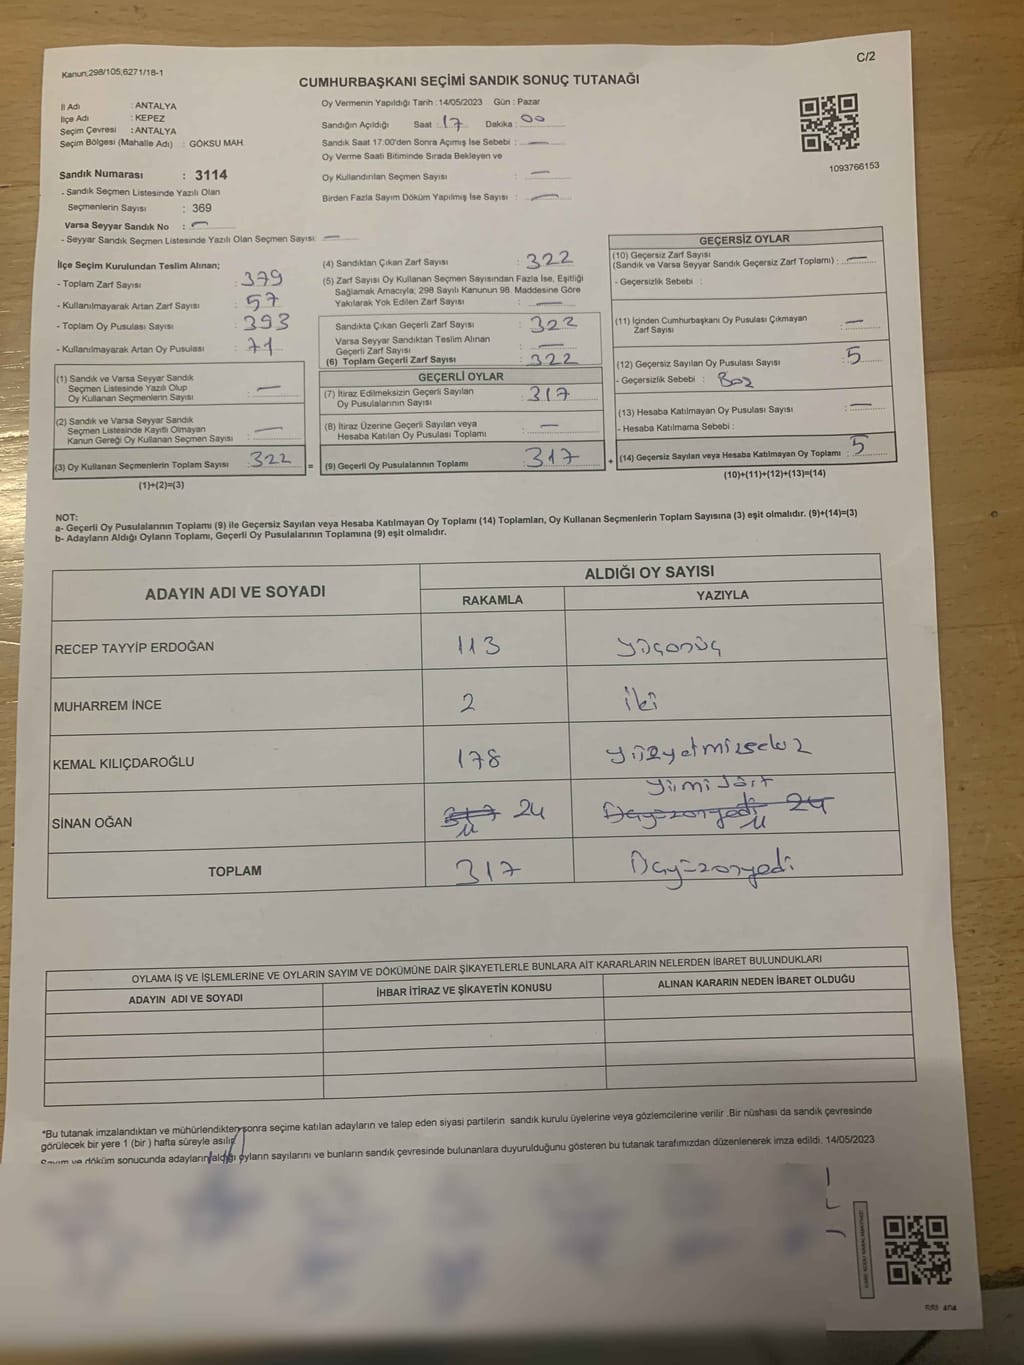 Kanun;298/105,6271/18-1
C/2
CUMHURBAŞKANI SEÇİMİ SANDIK SONUÇ TUTANAĞI
İl Adı : ANTALYA
İlçe Adı : KEPEZ
Seçim Çevresi : ANTALYA
Seçim Bölgesi (Mahalle Adı) : GÖKSU MAH.
Sandık Numarası : 3114
- Sandık Seçmen Listesinde Yazılı Olan
Seçmenlerin Sayısı : 369
Varsa Seyyar Sandık No : —
- Seyyar Sandık Seçmen Listesinde Yazılı Olan Seçmen Sayısı: —
Oy Vermenin Yapıldığı Tarih :14/05/2023 Gün : Pazar
Sandığın Açıldığı Saat : 17 Dakika : 00
Sandık Saat 17:00'den Sonra Açımış İse Sebebi : —
Oy Verme Saati Bitiminde Sırada Bekleyen ve
Oy Kullandırılan Seçmen Sayısı : —
Birden Fazla Sayım Döküm Yapılmış İse Sayısı : —
1093766153
İlçe Seçim Kurulundan Teslim Alınan;
- Toplam Zarf Sayısı : 379
- Kullanılmayarak Artan Zarf Sayısı : 57
- Toplam Oy Pusulası Sayısı : 393
- Kullanılmayarak Artan Oy Pusulası : 71
(1) Sandık ve Varsa Seyyar Sandık
Seçmen Listesinde Yazılı Olup
Oy Kullanan Seçmenlerin Sayısı : —
(2) Sandık ve Varsa Seyyar Sandık
Seçmen Listesinde Kayıtlı Olmayan
Kanun Gereği Oy Kullanan Seçmen Sayısı : —
(3) Oy Kullanan Seçmenlerin Toplam Sayısı : 322
(1)+(2)=(3)
(4) Sandıktan Çıkan Zarf Sayısı : 322
(5) Zarf Sayısı Oy Kullanan Seçmen Sayısından Fazla İse, Eşitliği
Sağlamak Amacıyla; 298 Sayılı Kanunun 98. Maddesine Göre
Yakılarak Yok Edilen Zarf Sayısı : —
Sandıkta Çıkan Geçerli Zarf Sayısı : 322
Varsa Seyyar Sandıktan Teslim Alınan
Geçerli Zarf Sayısı : —
(6) Toplam Geçerli Zarf Sayısı : 322
GEÇERLİ OYLAR
(7) İtiraz Edilmeksizin Geçerli Sayılan
Oy Pusulalarının Sayısı : 317
(8) İtiraz Üzerine Geçerli Sayılan veya
Hesaba Katılan Oy Pusulası Toplamı : —
= (9) Geçerli Oy Pusulalarının Toplamı : 317 +
GEÇERSİZ OYLAR
(10) Geçersiz Zarf Sayısı
(Sandık ve Varsa Seyyar Sandık Geçersiz Zarf Toplamı) : —
- Geçersizlik Sebebi :
(11) İçinden Cumhurbaşkanı Oy Pusulası Çıkmayan
Zarf Sayısı : —
(12) Geçersiz Sayılan Oy Pusulası Sayısı : 5
- Geçersizlik Sebebi : Boz
(13) Hesaba Katılmayan Oy Pusulası Sayısı : —
- Hesaba Katılmama Sebebi :
(14) Geçersiz Sayılan veya Hesaba Katılmayan Oy Toplamı : 5
(10)+(11)+(12)+(13)=(14)
NOT:
a- Geçerli Oy Pusulalarının Toplamı (9) ile Geçersiz Sayılan veya Hesaba Katılmayan Oy Toplamı (14) Toplamları, Oy Kullanan Seçmenlerin Toplam Sayısına (3) eşit olmalıdır. (9)+(14)=(3)
b- Adayların Aldığı Oyların Toplamı, Geçerli Oy Pusulalarının Toplamına (9) eşit olmalıdır.
ADAYIN ADI VE SOYADI
ALDIĞI OY SAYISI
RAKAMLA YAZIYLA
RECEP TAYYİP ERDOĞAN 113 yüzonüç
MUHARREM İNCE 2 iki
KEMAL KILIÇDAROĞLU 178 yüzyetmizsekiz
SİNAN OĞAN 317 24 yirmi dört 24
TOPLAM 317 üçyüzonyedi
OYLAMA İŞ VE İŞLEMLERİNE VE OYLARIN SAYIM VE DÖKÜMÜNE DAİR ŞİKAYETLERLE BUNLARA AİT KARARLARIN NELERDEN İBARET BULUNDUKLARI
ADAYIN ADI VE SOYADI İHBAR İTİRAZ VE ŞİKAYETİN KONUSU ALINAN KARARIN NEDEN İBARET OLDUĞU
*Bu tutanak imzalandıktan ve mühürlendikten sonra seçime katılan adayların ve talep eden siyasi partilerin sandık kurulu üyelerine veya gözlemcilerine verilir .Bir nüshası da sandık çevresinde
görülecek bir yere 1 (bir ) hafta süreyle asılır.
Sayım ve döküm sonucunda adayların aldığı oyların sayılarını ve bunların sandık çevresinde bulunanlara duyurulduğunu gösteren bu tutanak tarafımızdan düzenlenerek imza edildi. 14/05/2023